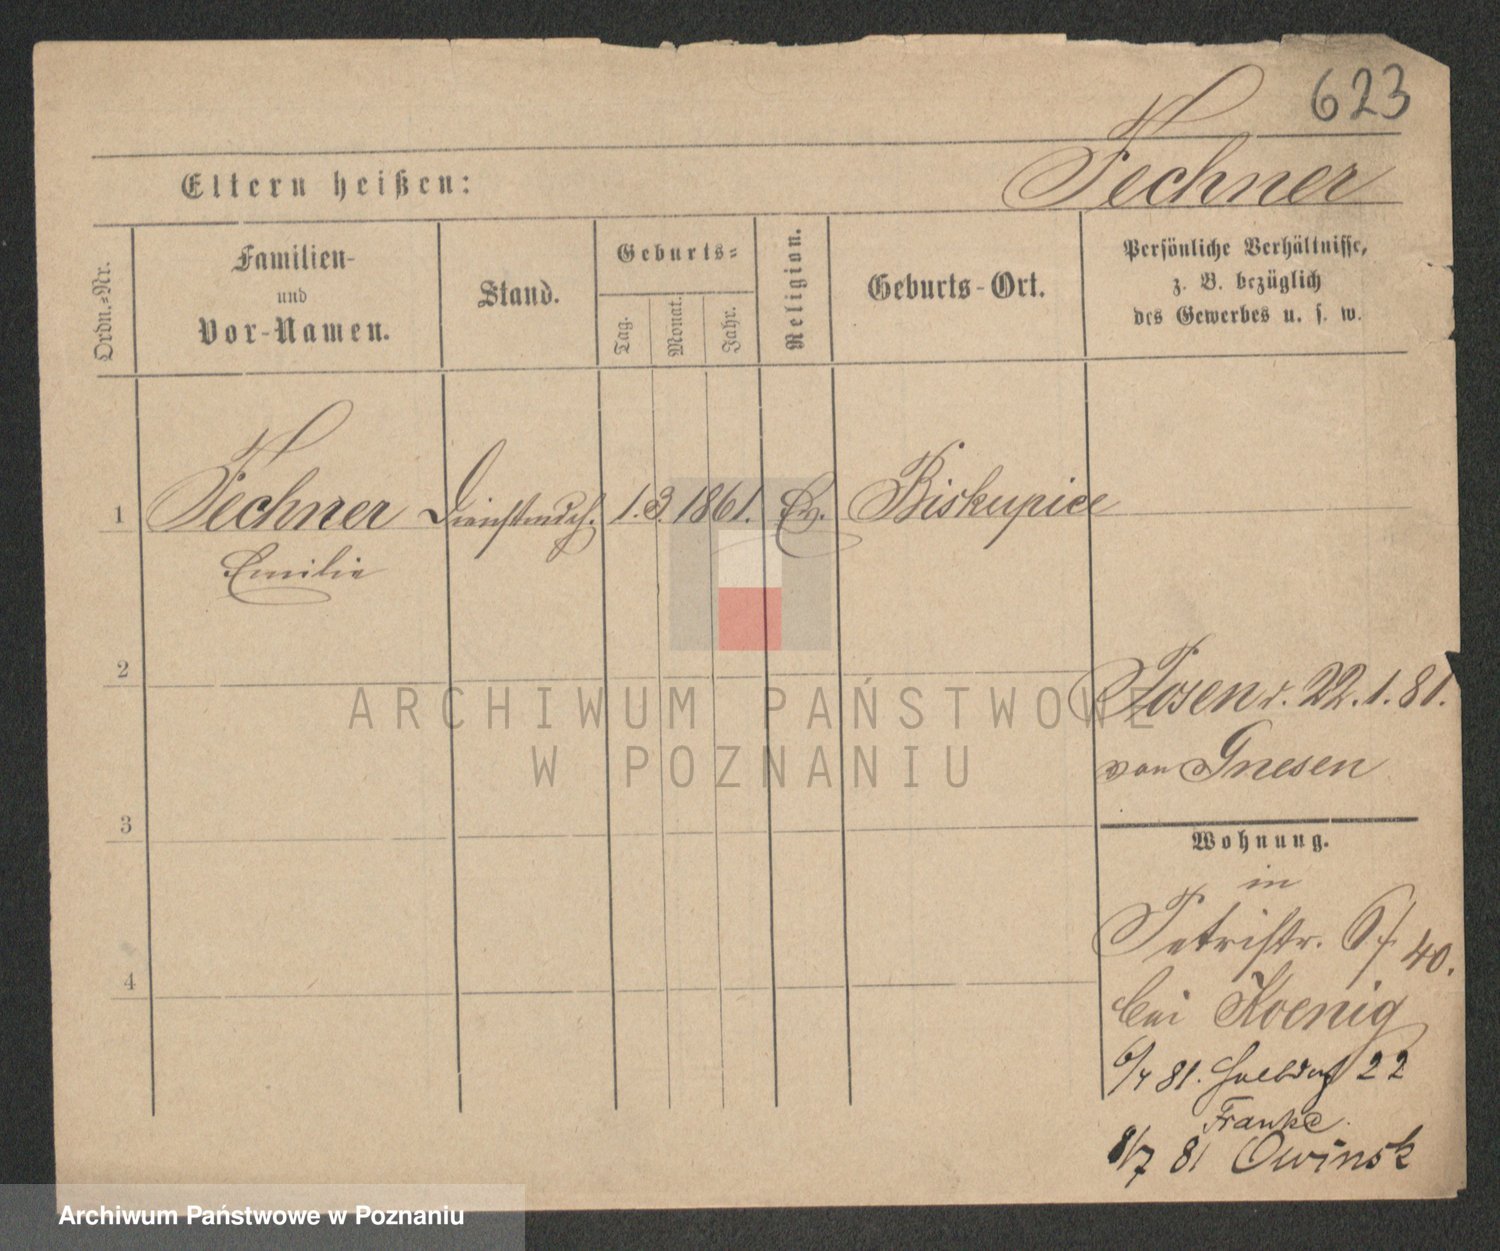 623
Fechner
Eltern heißen:
Ordn.-Nr.
Familien-
und
Vor-Namen.
Stand.
Geburts-
Tag.
Monat.
Jahr.
Religion.
Geburts-Ort.
Persönliche Verhältnisse,
z. B. bezüglich
des Gewerbes u. s. w.
1 Fechner Dienstmdch. 1. 3. 1861. Ev. Biskupice
Emilie
2
Posen d. 22.1.81.
von Gnesen
3
Wohnung.
in
Petristr. 6/ 40.
4
bei Koenig
6/4 81. Halbdorf 22
Franke
8/7 81 Owinsk
ARCHIWUM PAŃSTWOWE
W POZNANIU
Archiwum Państwowe w Poznaniu